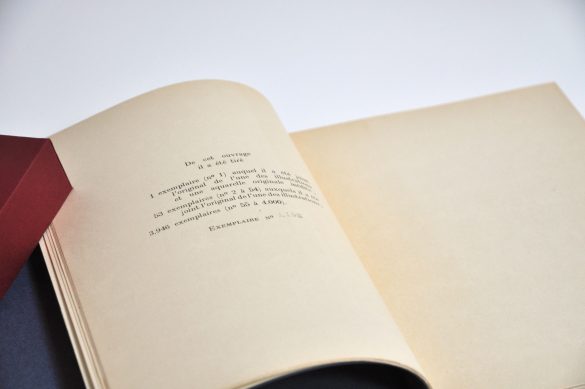 De cet ouvrage
il a été tiré
1 exemplaire (nº 1) auquel il a été joint
l'original de l'une des illustrations
et une aquarelle originale inédite
53 exemplaires (nº 2 à 54) auxquels il a été
joint l'original de l'une des illustrations
3.946 exemplaires (nº 55 à 4.000).
Exemplaire Nº